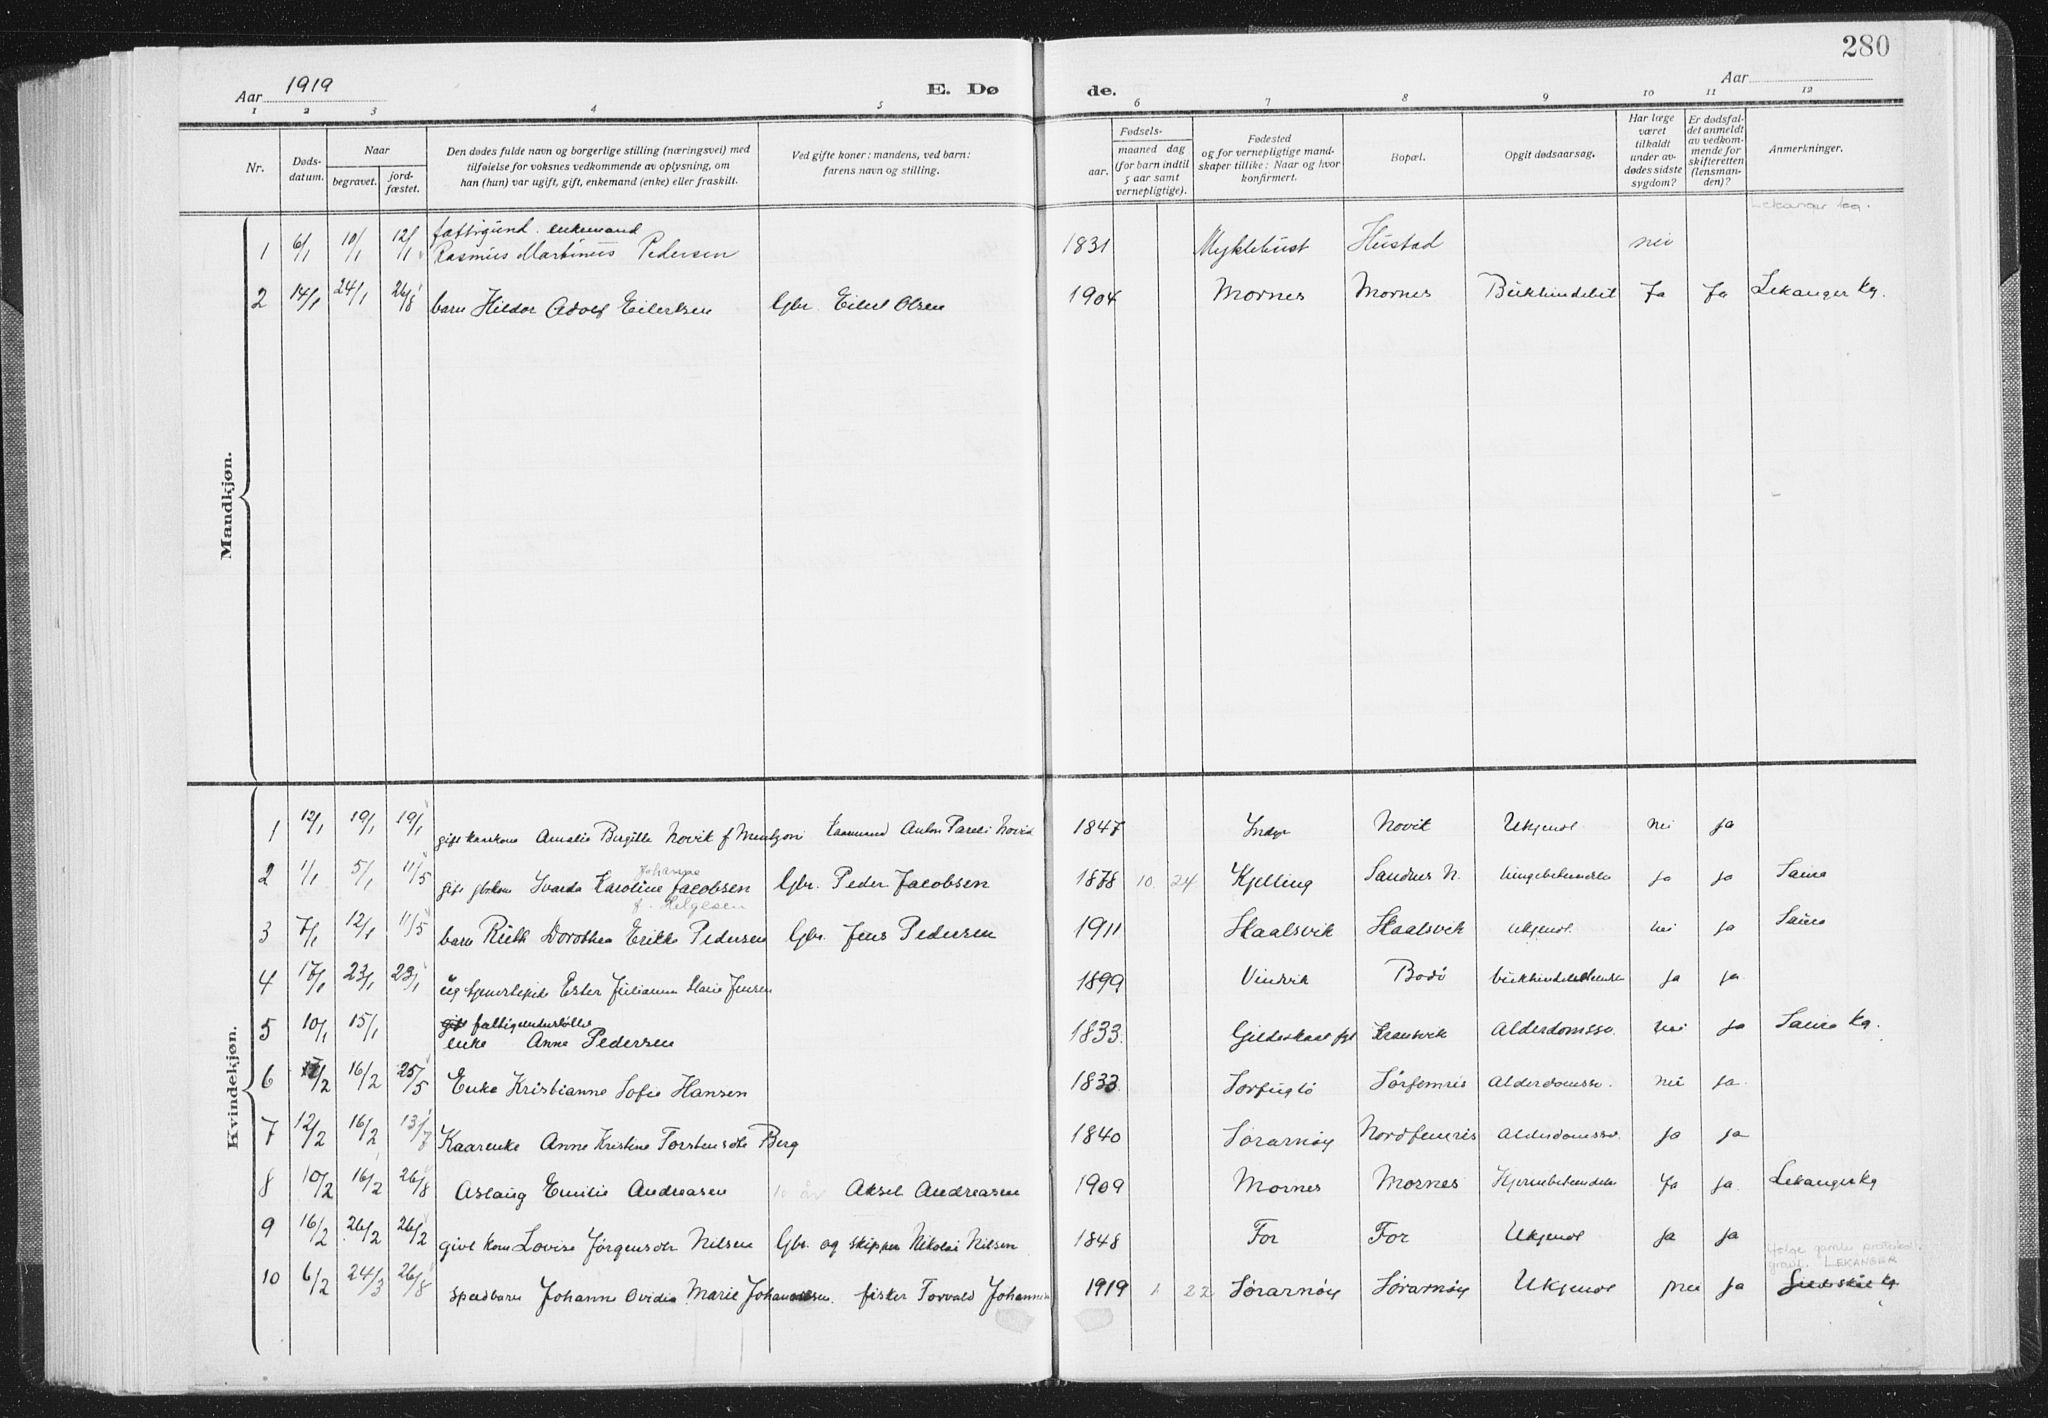 280
Aar 1919
E. Dø
de.
Aar
1 2 3 4 5 6 7 8 9 10 11 12
Nr.
Døds-
datum.
Naar
begravet.
jord-
fæstet.
Den dødes fulde navn og borgerlige stilling (næringsvei) med
tilføielse for voksnes vedkommende av oplysning, om
han (hun) var ugift, gift, enkemand (enke) eller fraskilt.
Ved gifte koner: mandens, ved barn:
farens navn og stilling.
Fødsels-
aar.
maaned dag
(for barn indtil
5 aar samt
vernepligtige).
Fødested
og for vernepligtige mand-
skaper tillike: Naar og hvor
konfirmert.
Bopæl.
Opgit dødsaarsag.
Har læge
været
tilkaldt
under av-
dødes sidste
sygdom?
Er dødsfal-
det anmeldt
av vedkom-
mende for
skifteretten
(lensman-
den)?
Anmerkninger.
Mandkjøn.
Lekanger kg.
fattigund. enkemand
1 6/1 10/1 12/1 Rasmus Martinus Pedersen 1831 Myklebust Hustad nei
2 14/1 24/1 26/8 barn Hildor Adolf Eilertsen Gbr. Eilert Olsen 1904 Mornes Mornes Ja Ja Lekanger kg.
Kvindekjøn.
1 12/1 19/1 19/1 gift Amalie Birgitte Novik f Mentzoni Anton Novik 1847 Indyr Novik Ukjendt nei ja
Johanna
2 1/1 5/1 11/5 gift Karoline Jacobsen Gbr. Peder Jacobsen 1878 10. 24 Kjelling Sandnes N. ja ja Saura
f. Helgesen
3 7/1 12/1 11/5 barn Ruth Dorothea Erikke Pedersen Gbr. Jens Pedersen 1911 Skaalsvik Skaalsvik Ukjendt nei ja Saura
4 17/1 23/1 23/1 ug Ester Julianne Marie Jensen 1899 Vindvik Bodö ja ja
gift fattigunderstøttet
5 10/1 15/1 enke Anne Pedersen 1833. Gildeskaal Alderdomssv. nei ja Saura kg.
6 /2 16/2 25/5 Enke Kristianne Sofie Hansen 1833 Sørfugló Alderdomssv. nei ja
7 12/2 16/2 13/7 Kaarenke Anne Kristine Torstensdtr Berg 1840 Sørarnøy Nordfemris Alderdomssv. ja ja
8 10/2 16/2 26/8 Aslaug Emilie Andreasen 10 år Aksel Andreasen 1909 Mornes Mornes Ja ja Lekanger kg
9 16/2 26/2 26/2 givt kone Lovise Jørgensdtr Nilsen Gbr. og skipper Nikolai Nilsen 1848 For For Ukjendt ja ja
ifølge gamle protokoll.
gravl. LEKANGER
10 6/2 24/3 26/8 spedbarn Johanne Ovidia Marie Johannesen. fisker Torvald Johannesen 1919 1 22 Sørarnøy Sørarnøy Ukjendt nei ja Gildeskål kg